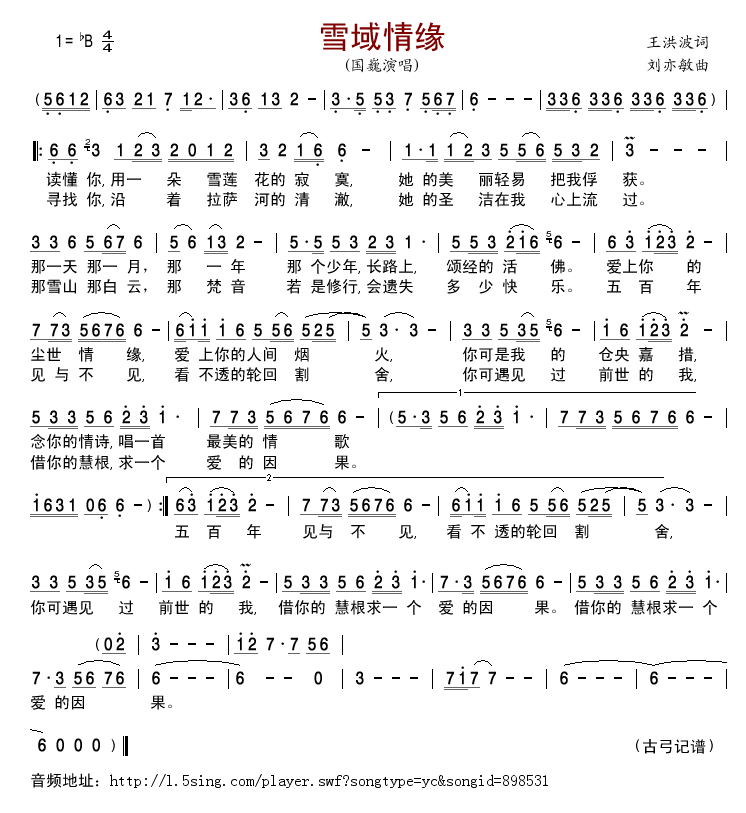 雪域情缘
1=♭B 4/4
王洪波词
(国巍演唱)
刘亦敏曲
(5612|63 21 7 12·|36 13 2 -|3·5 53 7 567|6 - - -|336 336 336 336)|
‖:6 6 3 1 23 2012|32 16 6 -|1·1 123 556 532|3 - - -|
读懂你,用一 朵 雪莲 花的寂 寞, 她 的美 丽轻易 把我俘 获。
寻找你,沿 着 拉萨 河的清 澈, 她的圣 洁在我 心上流 过。
3 3 6 5 67 6|5 6 13 2 -|5·5 53 23 1·|553 216 6 -|63 123 2 -|
那一天 那一 月， 那 一年 那 个少年,长路上, 颂经的 活 佛。 爱上你 的
那雪山 那白 云， 那 梵音 若 是修行,会遗失 多 少快 乐。 五 百 年
7 73 5676 6 -|611 16 5 56 525|5 3·3 -|33 5 35 6 -|16 123 2 -|
尘世 情 缘, 爱 上你的人间 烟 火, 你可是我 的 仓央 嘉 措,
见与 不 见, 看 不透的轮回 割 舍, 你可遇见 过 前世 的 我,
533 56 23 1·|773 5676 6 -|(5·3 56 23 1·|773 56766 -|
1
念你的情诗,唱一首 最美的 情 歌
借你的慧根,求一个 爱 的因 果。
1631 06 6 -):‖63 123 2 -|7 73 5676 6 -|611 16 5 56 525|5 3·3 -|
2
五 百 年 见与 不 见, 看 不 透的轮回 割 舍,
33 5 35 6 -|16 123 2 -|533 56 23 1·|7·3 5676 6 -|533 56 23 1·|
你可遇见 过 前世 的 我, 借你的 慧根求一 个 爱 的因 果。 借你的 慧根求一 个
(02|3 - - -|12 7·7 56|
7·3 56 76|6 - - -|6 - - 0|3 - - -|717 7 - -|6 - - -|6 - - -|
爱 的因 果。
6 0 0 0)‖
(古弓记谱)
音频地址：http://1.5sing.com/player.swf?songtype=yc&songid=898531